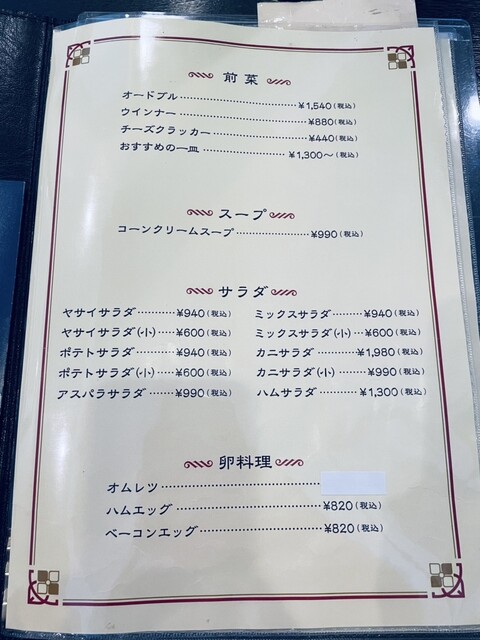 前菜
オードブル……………………¥1,540(税込)
ウインナー……………………¥880(税込)
チーズクラッカー………………¥440(税込)
おすすめの一皿………………¥1,300〜(税込)
スープ
コーンクリームスープ……………¥990(税込)
サラダ
ヤサイサラダ………¥940(税込)
ヤサイサラダ(小)……¥600(税込)
ポテトサラダ………¥940(税込)
ポテトサラダ(小)……¥600(税込)
アスパラサラダ……¥990(税込)
ミックスサラダ………¥940(税込)
ミックスサラダ(小)…¥600(税込)
カニサラダ…………¥1,980(税込)
カニサラダ(小)………¥990(税込)
ハムサラダ…………¥1,300(税込)
卵料理
オムレツ……………………………
ハムエッグ……………………………¥820(税込)
ベーコンエッグ………………………¥820(税込)